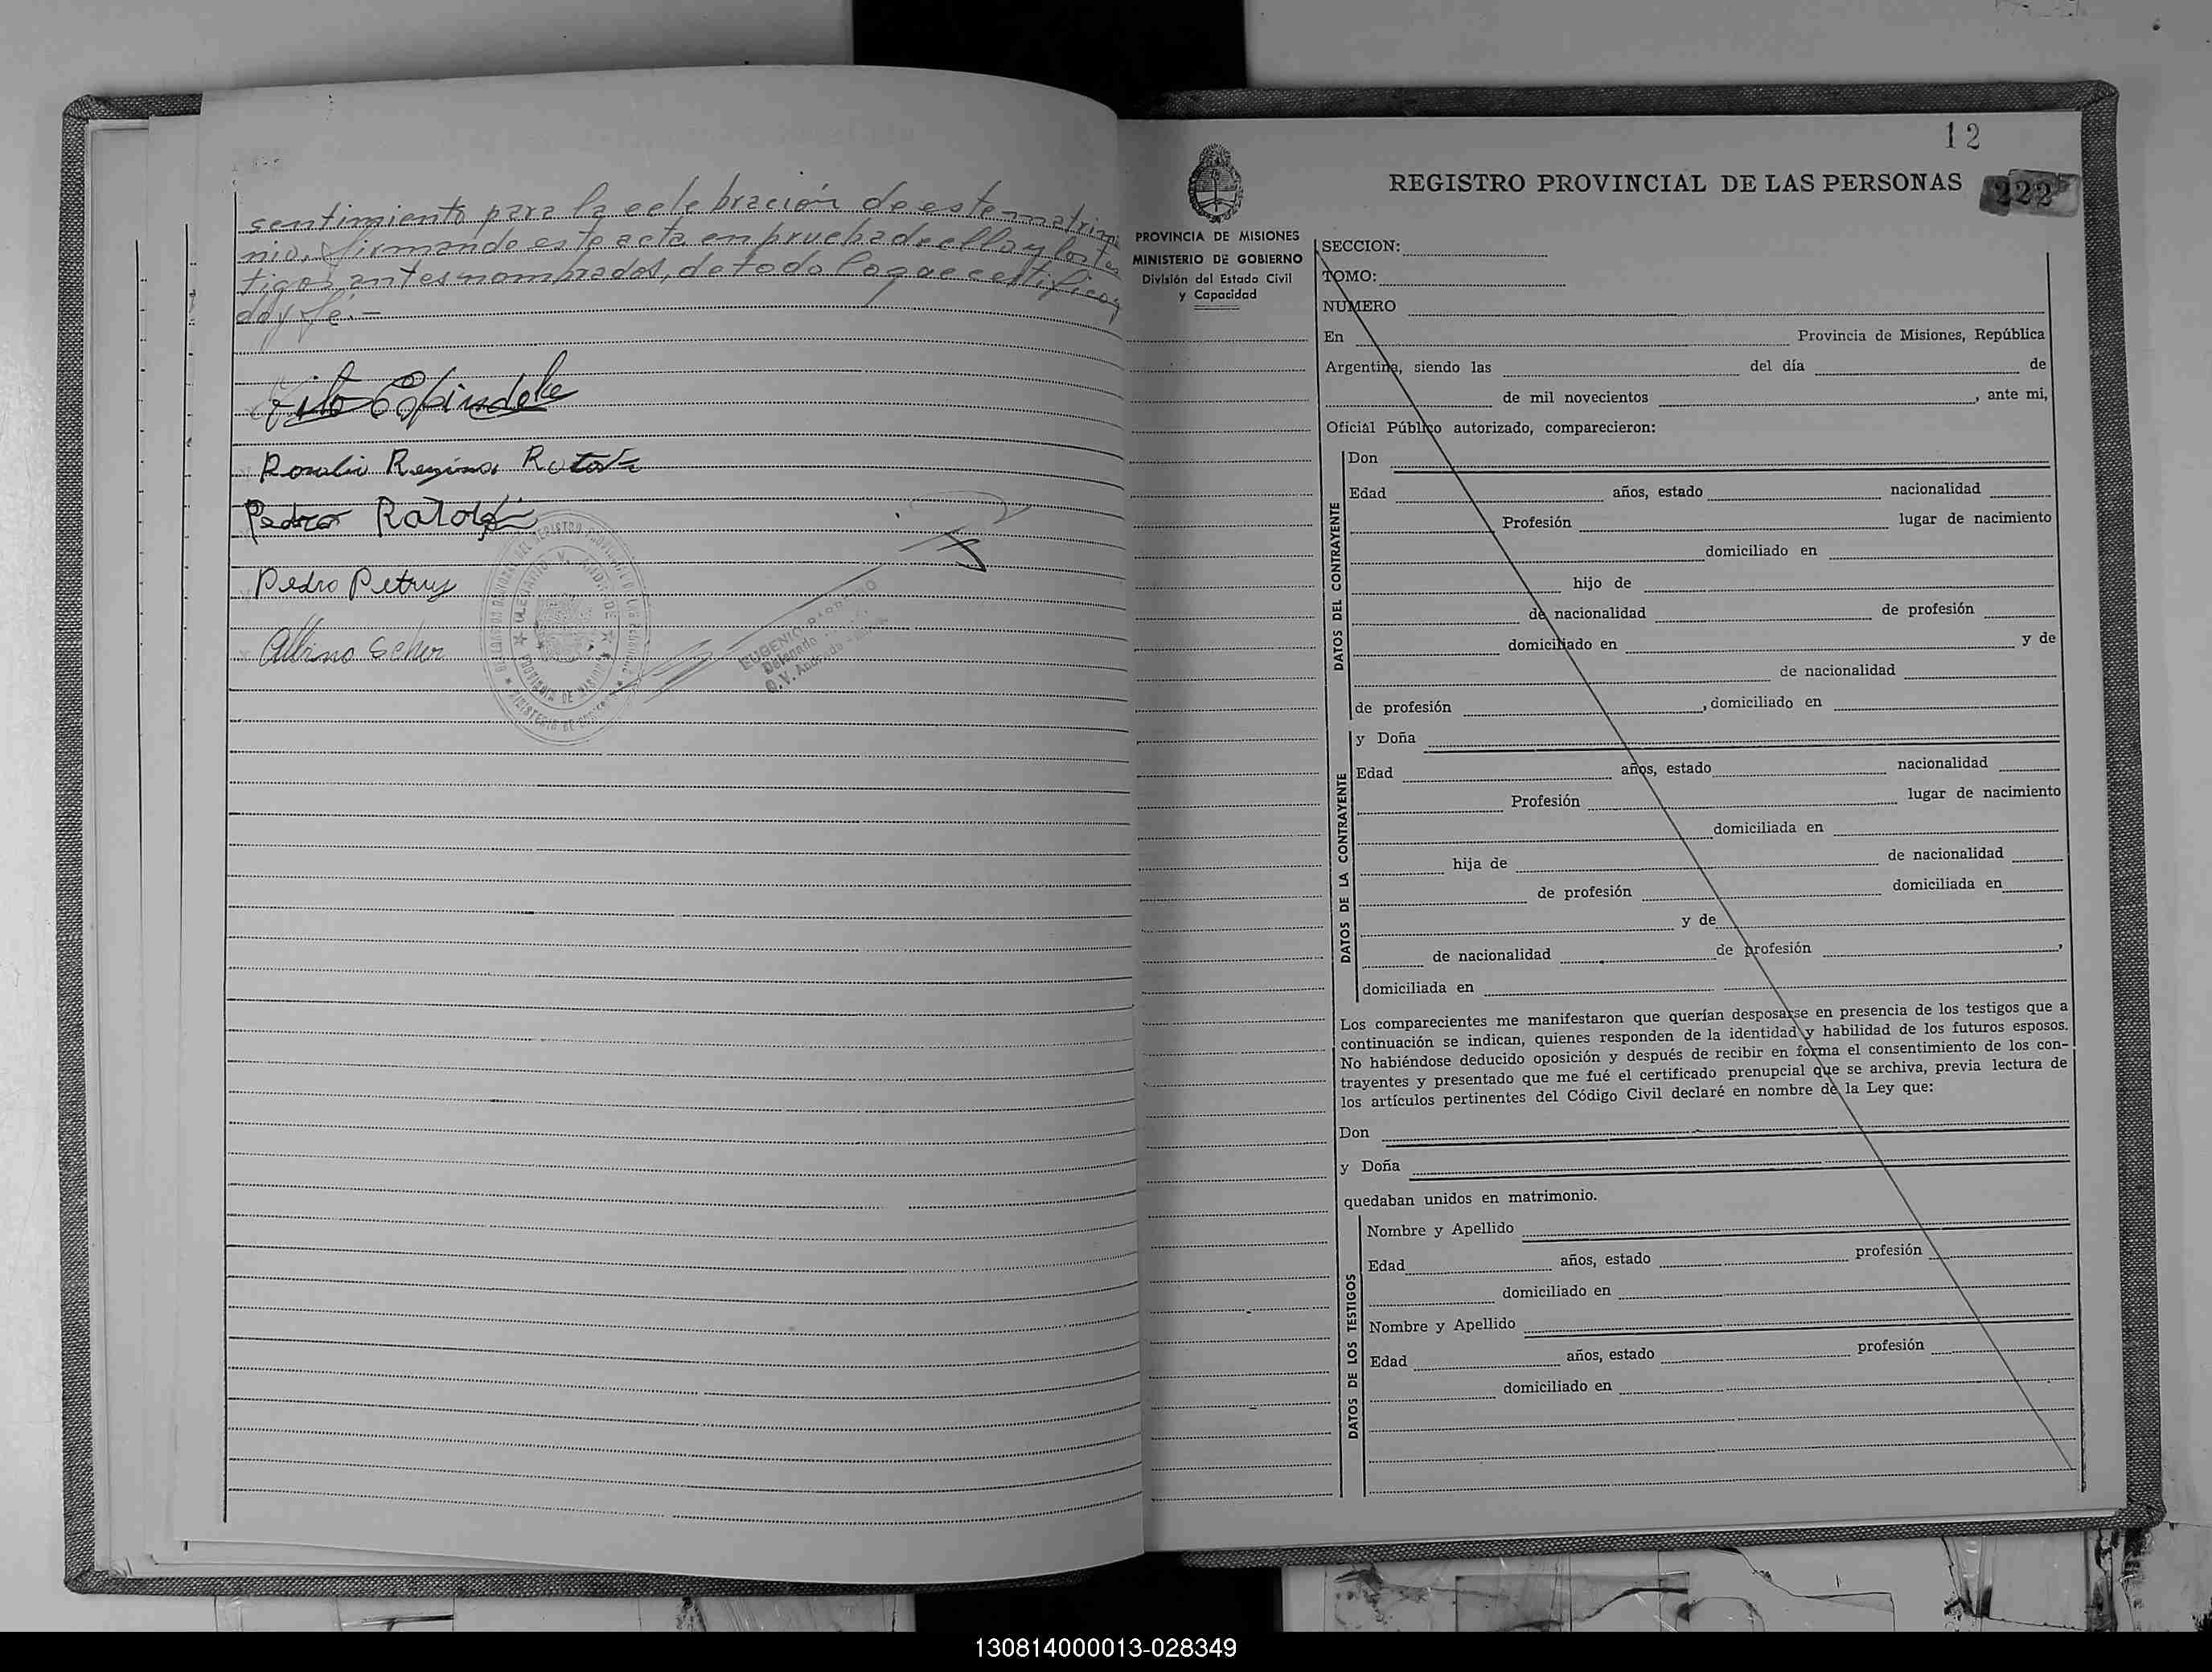 sentimiento para la celebración de este matrimo
nio, firmando este acta en prueba de ello y los tes
tigos antes nombrados, de todo lo que certifico y
doy fé.-
Vito Espindola
Rosalia Regina Ratova
Pedro
Pedro Petruy
Albino Scher
MINISTERIO DE GOBIERNO
PROVINCIA DE MISIONES
EUGENIO
Delegado
O.V. Andrade
12
REGISTRO PROVINCIAL DE LAS PERSONAS
222
PROVINCIA DE MISIONES
MINISTERIO DE GOBIERNO
División del Estado Civil
y Capacidad
SECCION:
TOMO:
NUMERO
En Provincia de Misiones, República
Argentina, siendo las del día de
de mil novecientos , ante mi,
Oficial Público autorizado, comparecieron:
DATOS DEL CONTRAYENTE
Don
Edad años, estado nacionalidad
Profesión lugar de nacimiento
domiciliado en
hijo de
de nacionalidad de profesión
domiciliado en y de
de nacionalidad
de profesión , domiciliado en
DATOS DE LA CONTRAYENTE
y Doña
Edad años, estado nacionalidad
Profesión lugar de nacimiento
domiciliada en
hija de de nacionalidad
de profesión domiciliada en
y de
de nacionalidad de profesión ,
domiciliada en
Los comparecientes me manifestaron que querían desposarse en presencia de los testigos que a
continuación se indican, quienes responden de la identidad y habilidad de los futuros esposos.
No habiéndose deducido oposición y después de recibir en forma el consentimiento de los con-
trayentes y presentado que me fué el certificado prenupcial que se archiva, previa lectura de
los artículos pertinentes del Código Civil declaré en nombre de la Ley que:
Don
y Doña
quedaban unidos en matrimonio.
DATOS DE LOS TESTIGOS
Nombre y Apellido
Edad años, estado profesión
domiciliado en
Nombre y Apellido
Edad años, estado profesión
domiciliado en
130814000013-028349